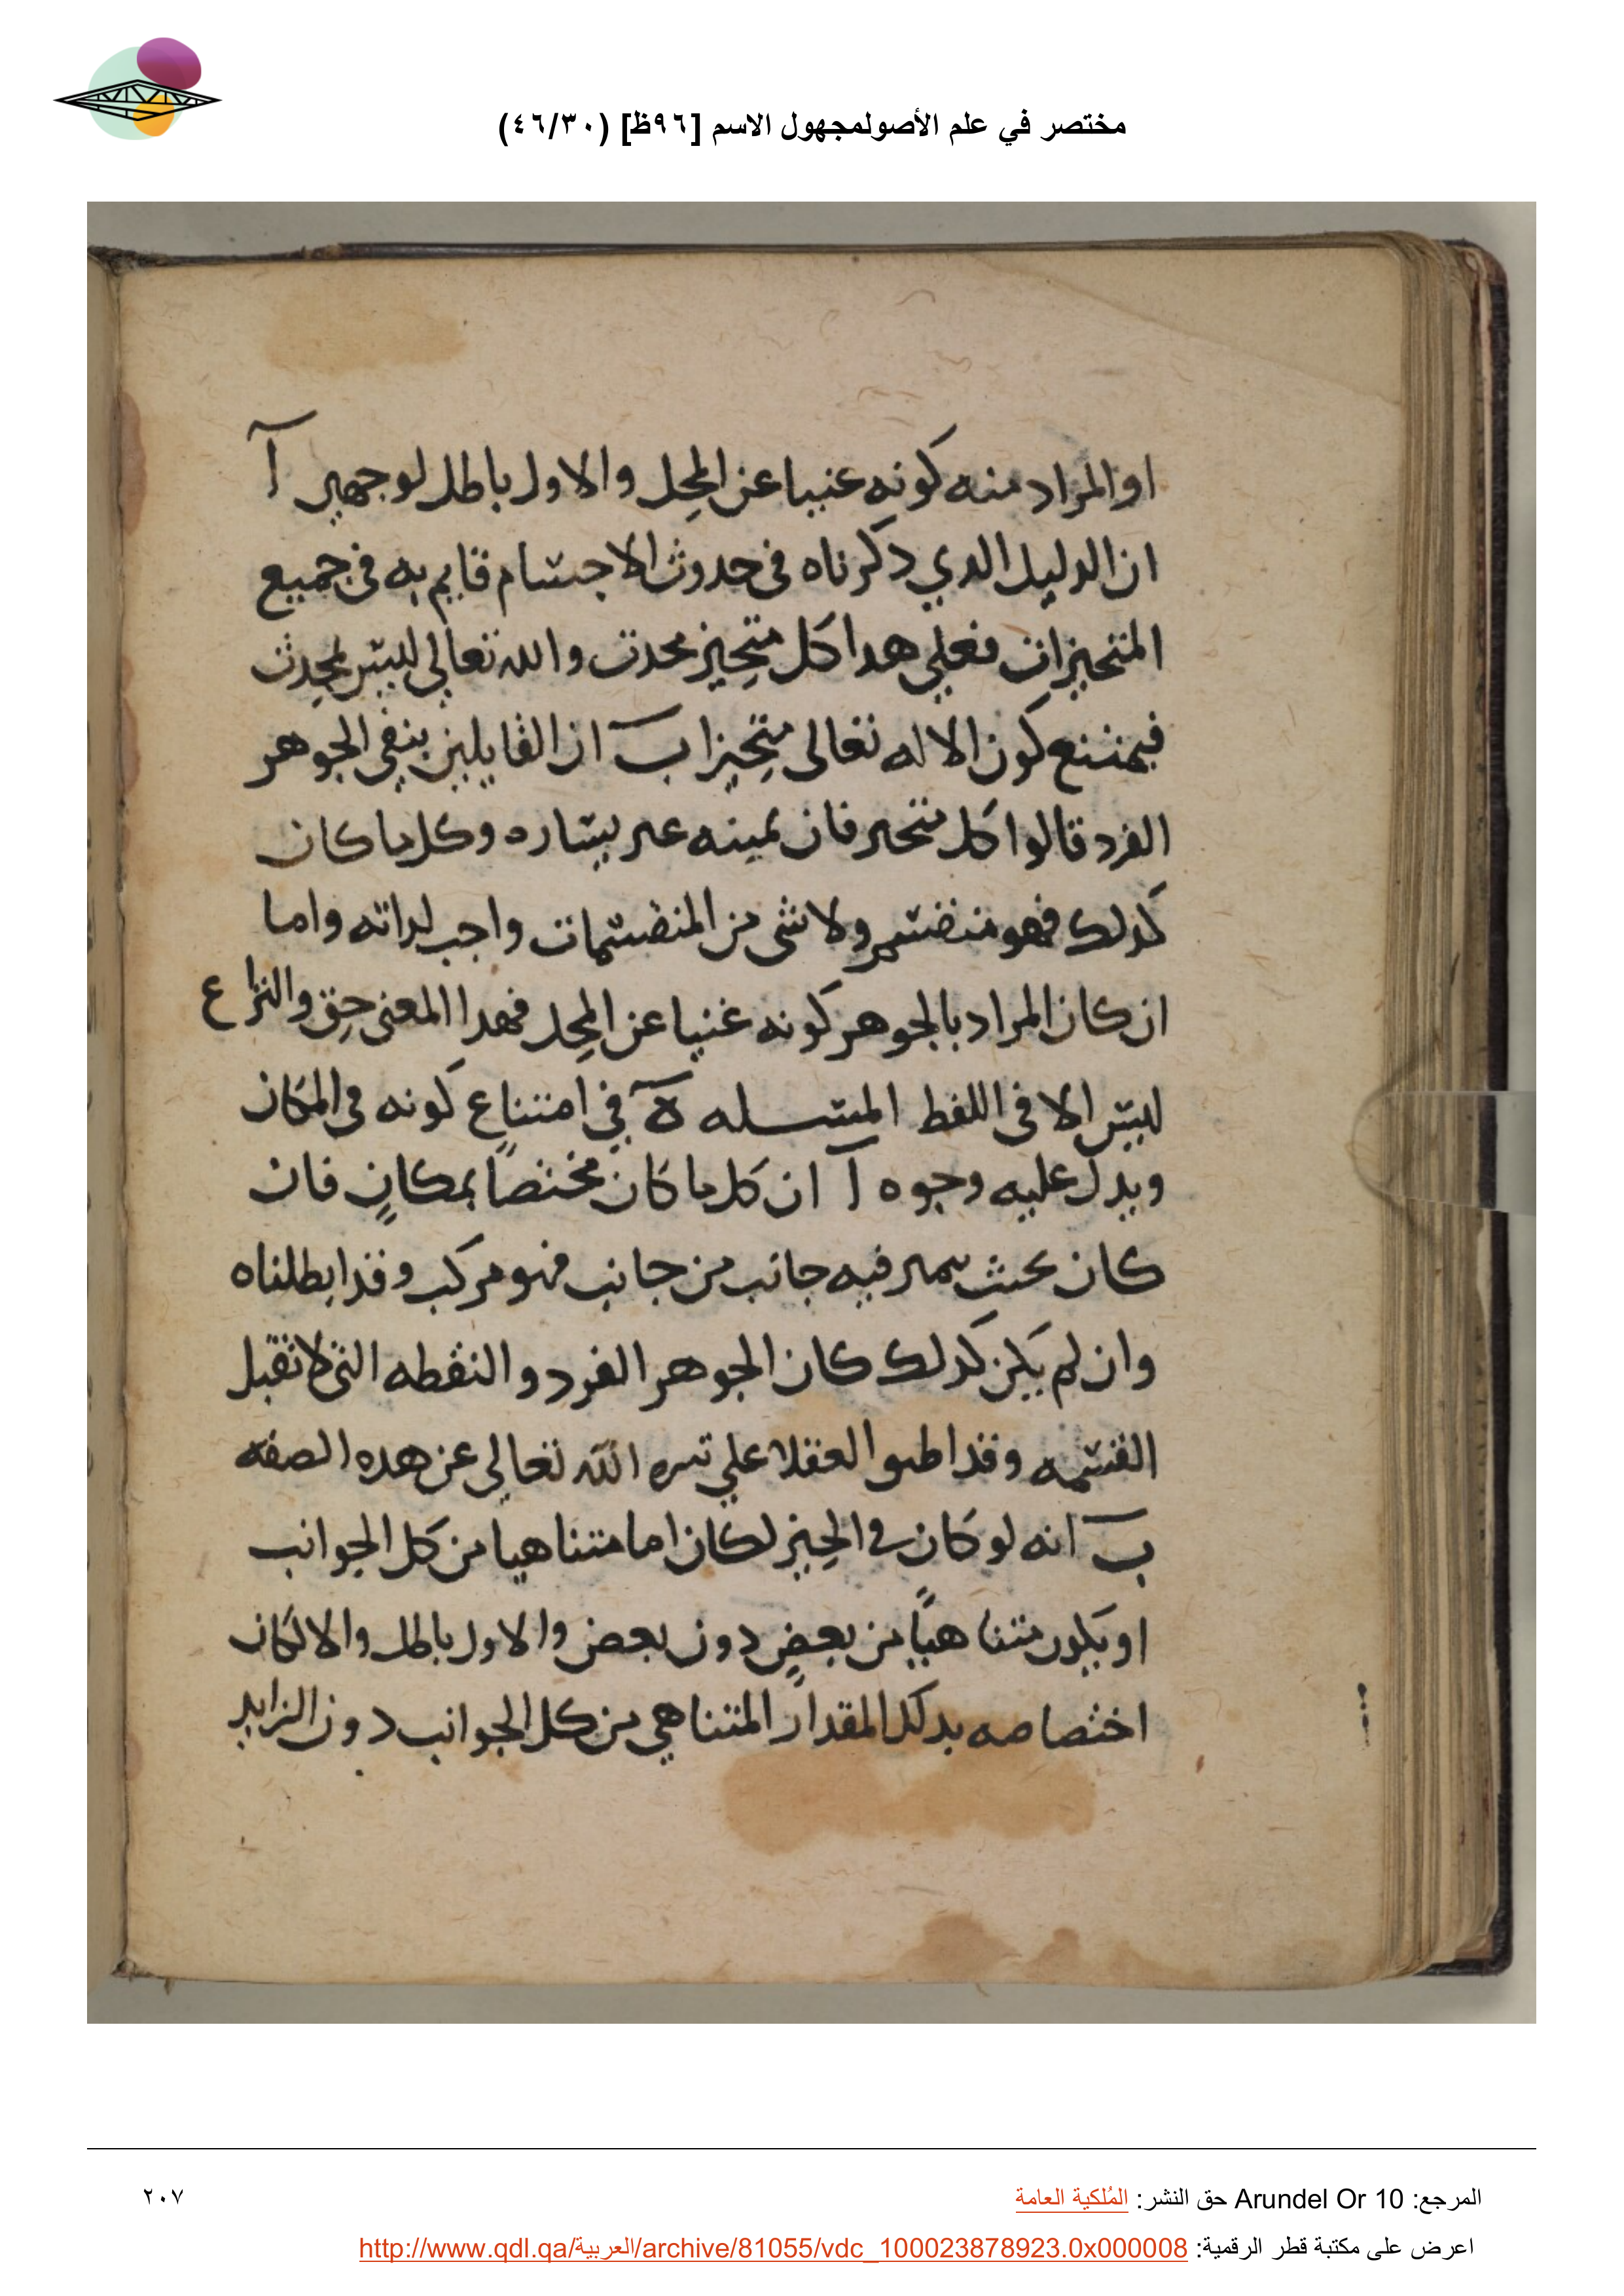 مختصر في علم الأصولمجهول الاسم [٩٦ظ] (٤٦/٣٠)
او المراد منه كونه غنيا عن المحل والاول باطل لوجهين آ
ان الدليل الدي دكرناه فى حدوث الاجسام قايم به فى جميع
المتحيزات فعلي هدا كل متحيز محدث والله تعالي ليس بمحدث
فيمتنع كون الاله تعالى متحيزا ب ان القايلين بنفي الجوهر
الفرد قالوا كل متحيز فان يمينه غير يساره وكل ما كان
كدلك فهو منقسم ولا شى من المنقسمات واجب لداته واما
ان كان المراد بالجوهر كونه غنيا عن المحل فهدا المعنى حق والنزاع
ليس الا فى اللفط المسله ة في امتناع كونه فى المكان
ويدل عليه وجوه آ ان كل ما كان مختصاً بمكانٍ فان
كان بحيث يتميز فيه جانب من جانب فهو مركب وقد ابطلناه
وان لم يكن كدلك كان الجوهر الفرد والنقطه التى لا تقبل
القسمه وقد اطبق العقلا علي تنزيه الله تعالي عن هده الصفه
ب انه لو كان في الحيز لكان اما متناهيا من كل الجوانب
او يكون متناهيًا من بعضٍ دون بعض والاول باطل والا لكان
اختصاصه بدلك المقدار المتناهي من كل الجوانب دون الزايد
المرجع: Arundel Or 10 حق النشر: المُلكية العامة
٢٠٧
اعرض على مكتبة قطر الرقمية: http://www.qdl.qa/العربية/archive/81055/vdc_100023878923.0x000008